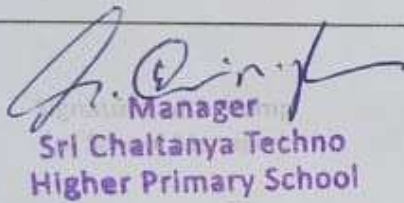 Manager
Sri Chaitanya Techno
Higher Primary School